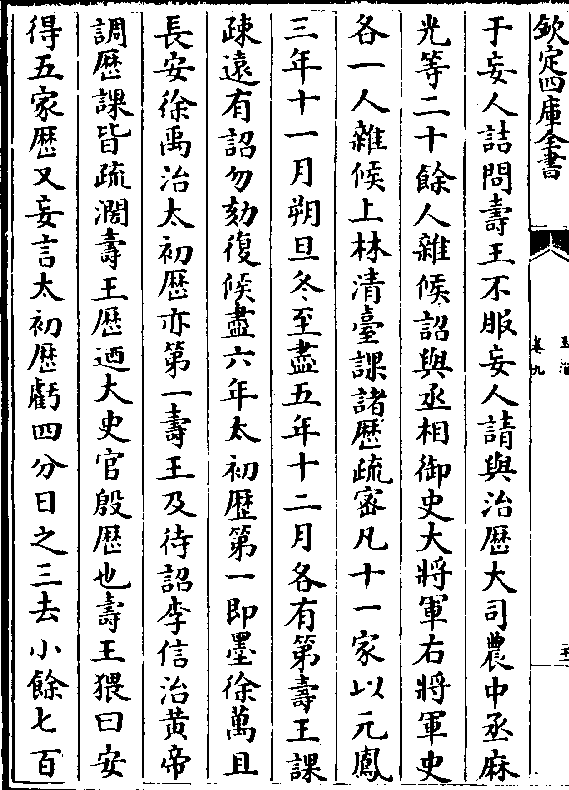 欽定四庫全書
于妄人詰問壽王不服妄人請與治歴大司農中丞麻
光等二十餘人雜候詔與丞相御史大將軍右將軍史
各一人雜候上林清臺課諸歴疏宻凡十一家以元鳳
三年十一月朔旦冬至盡五年十二月各有第壽王課
疎遠有詔勿劾復候盡六年太初歴第一即墨徐萬且
長安徐禹治太初歴亦第一壽王及待詔李信治黄帝
調歴課皆疏濶壽王歴迺大史官殷歴也壽王猥曰安
得五家歴又妄言太初歴虧四分日之三去小餘七百